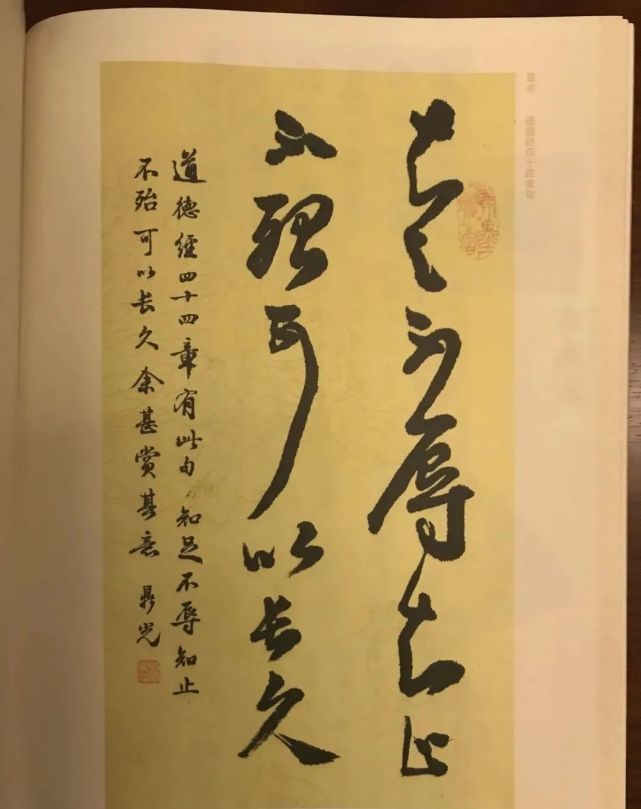 草书 道德经四十四章句
知足不辱知止
不殆可以长久
道德經四十四章有此句知足不辱知止
不殆可以长久余甚赏其意